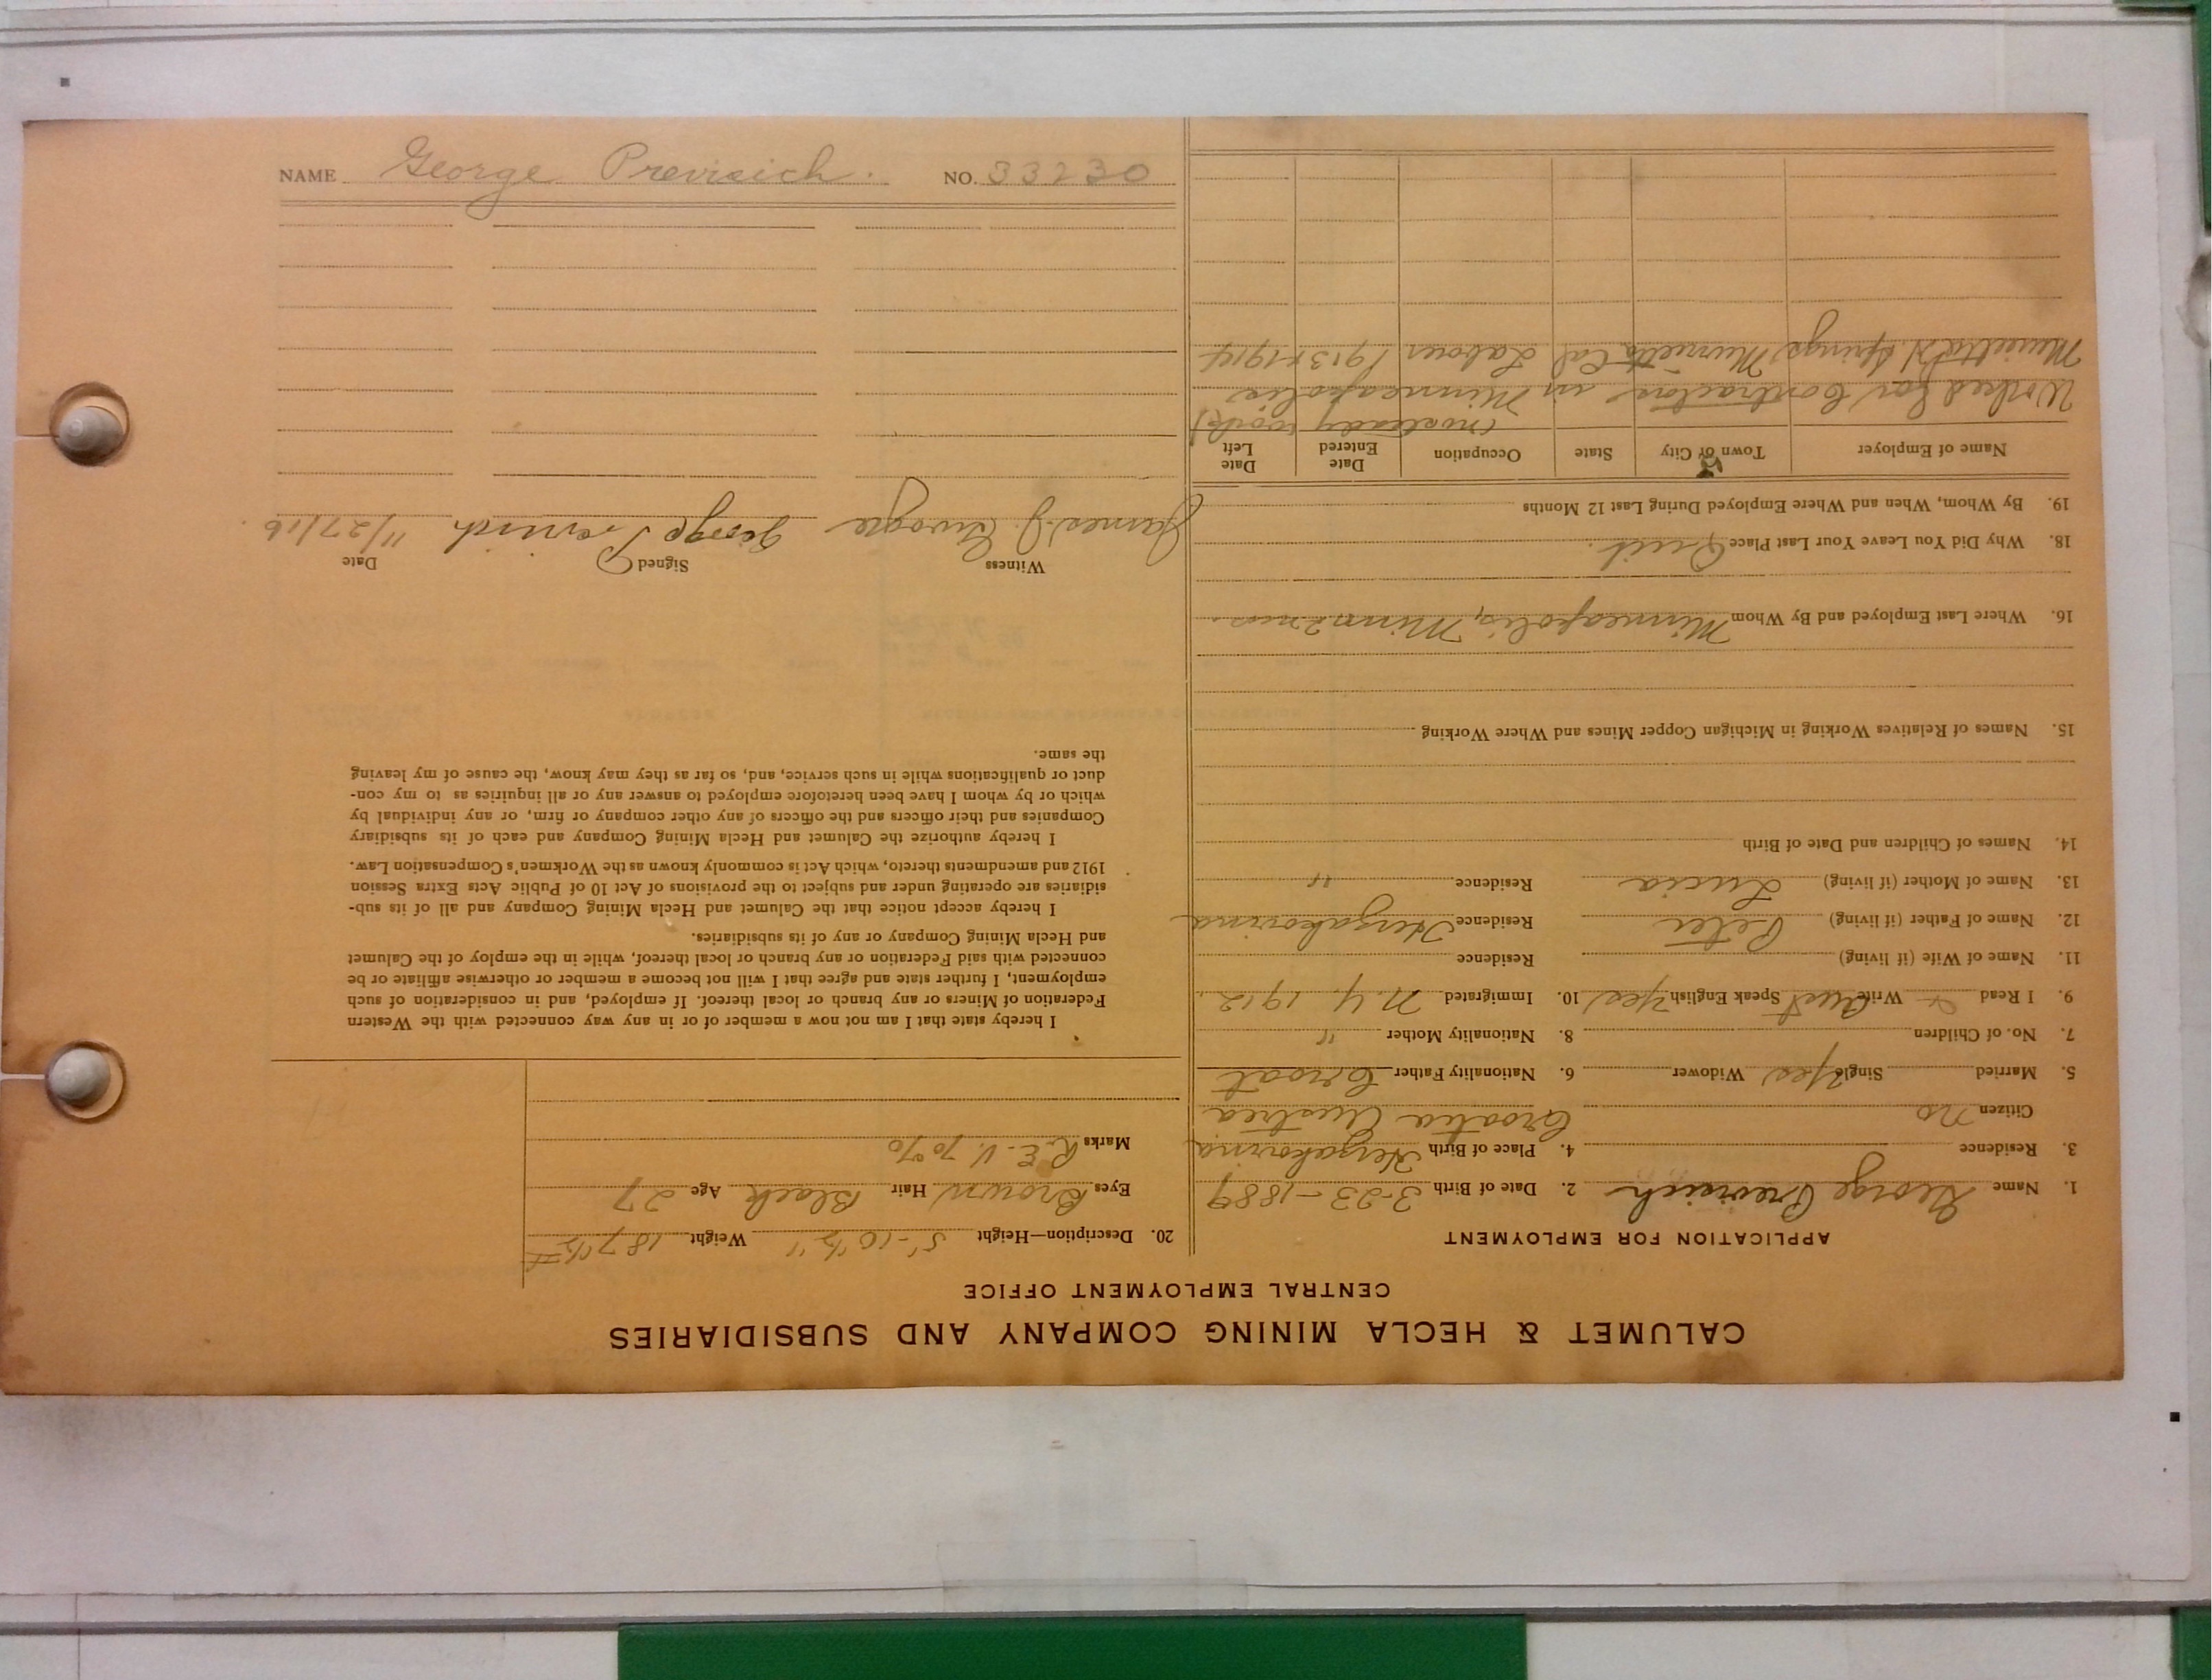 CALUMET & HECLA MINING COMPANY AND SUBSIDIARIES
CENTRAL EMPLOYMENT OFFICE
APPLICATION FOR EMPLOYMENT
1. Name George Previsich 2. Date of Birth 3-23-1889
3. Residence 4. Place of Birth Herzakovina
Citizen no Croatia Austria
5. Married Single yes Widower 6. Nationality Father Croat
7. No. of Children 8. Nationality Mother "
9. I Read & Write Aust Speak English yes 10. Immigrated N.Y. 1912.
11. Name of Wife (if living) Residence
12. Name of Father (if living) Peter Residence Herzakovina
13. Name of Mother (if living) Lucia Residence "
14. Names of Children and Date of Birth
15. Names of Relatives Working in Michigan Copper Mines and Where Working
16. Where Last Employed and By Whom Minneapolis, Minn 2 mos.
18. Why Did You Leave Your Last Place Quit.
19. By Whom, When and Where Employed During Last 12 Months
Name of Employer Town or City State Occupation Date Entered Date Left
work)
Worked for Contractors in Minneapolis
H Springs Murrieta Cal Labour 1913 1914
20. Description—Height 5'-10 1/2" Weight 187 1/2 #
Eyes Brown Hair Black Age 27
Marks R.E.V. 70%
I hereby state that I am not now a member of or in any way connected with the Western
Federation of Miners or any branch or local thereof. If employed, and in consideration of such
employment, I further state and agree that I will not become a member or otherwise affiliate or be
connected with said Federation or any branch or local thereof, while in the employ of the Calumet
and Hecla Mining Company or any of its subsidiaries.
I hereby accept notice that the Calumet and Hecla Mining Company and all of its sub-
sidiaries are operating under and subject to the provisions of Act 10 of Public Acts Extra Session
1912 and amendments thereto, which Act is commonly known as the Workmen's Compensation Law.
I hereby authorize the Calumet and Hecla Mining Company and each of its subsidiary
Companies and their officers and the officers of any other company or firm, or any individual by
which or by whom I have been heretofore employed to answer any or all inquiries as to my con-
duct or qualifications while in such service, and, so far as they may know, the cause of my leaving
the same.
Witness Signed Date
James J. George Previsich 11/27/16.
NAME George Previsich. NO. 33230